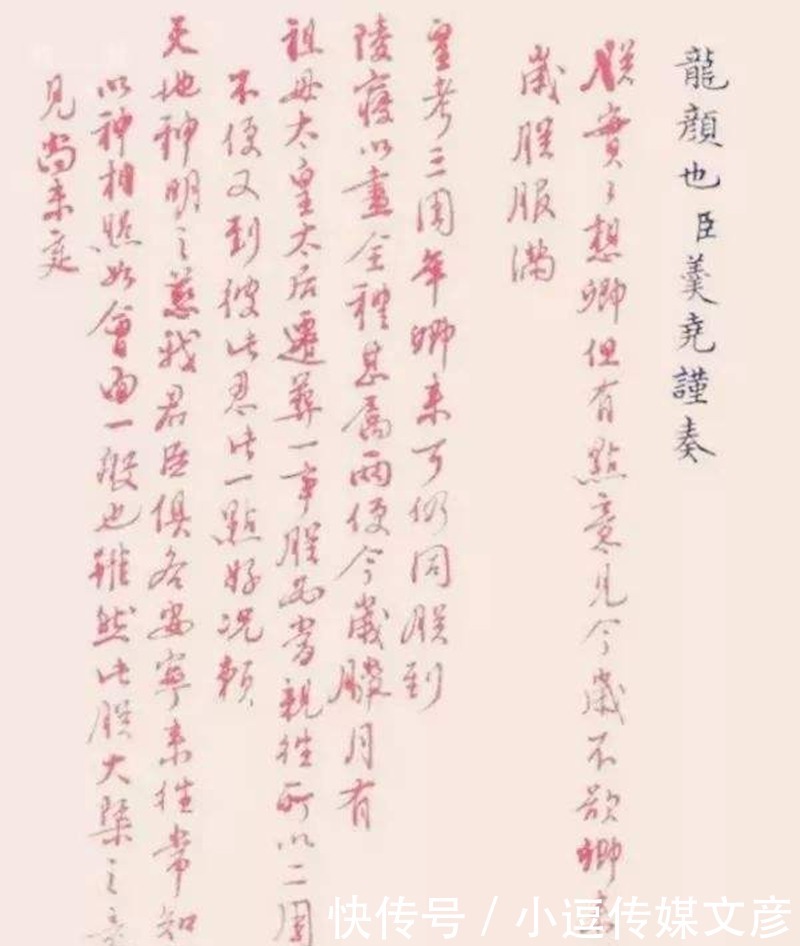 龍顏也臣羹堯謹奏
朕實〻想卿但有點意見今歲不欲卿
歲朕服滿
皇考三周年卿来可仍同朕到
陵寢以盡全禮甚屬兩便今歲臘月有
祖母太皇太后遷葬一事朕必當親往所以二周
不便又到彼此忍此一點好況賴
天地神明之慈我君臣俱各安寧来往常知
以神相照如會面一般也雖然此朕大槩之意
見尚未定
快传号 / 小逗传媒文彦